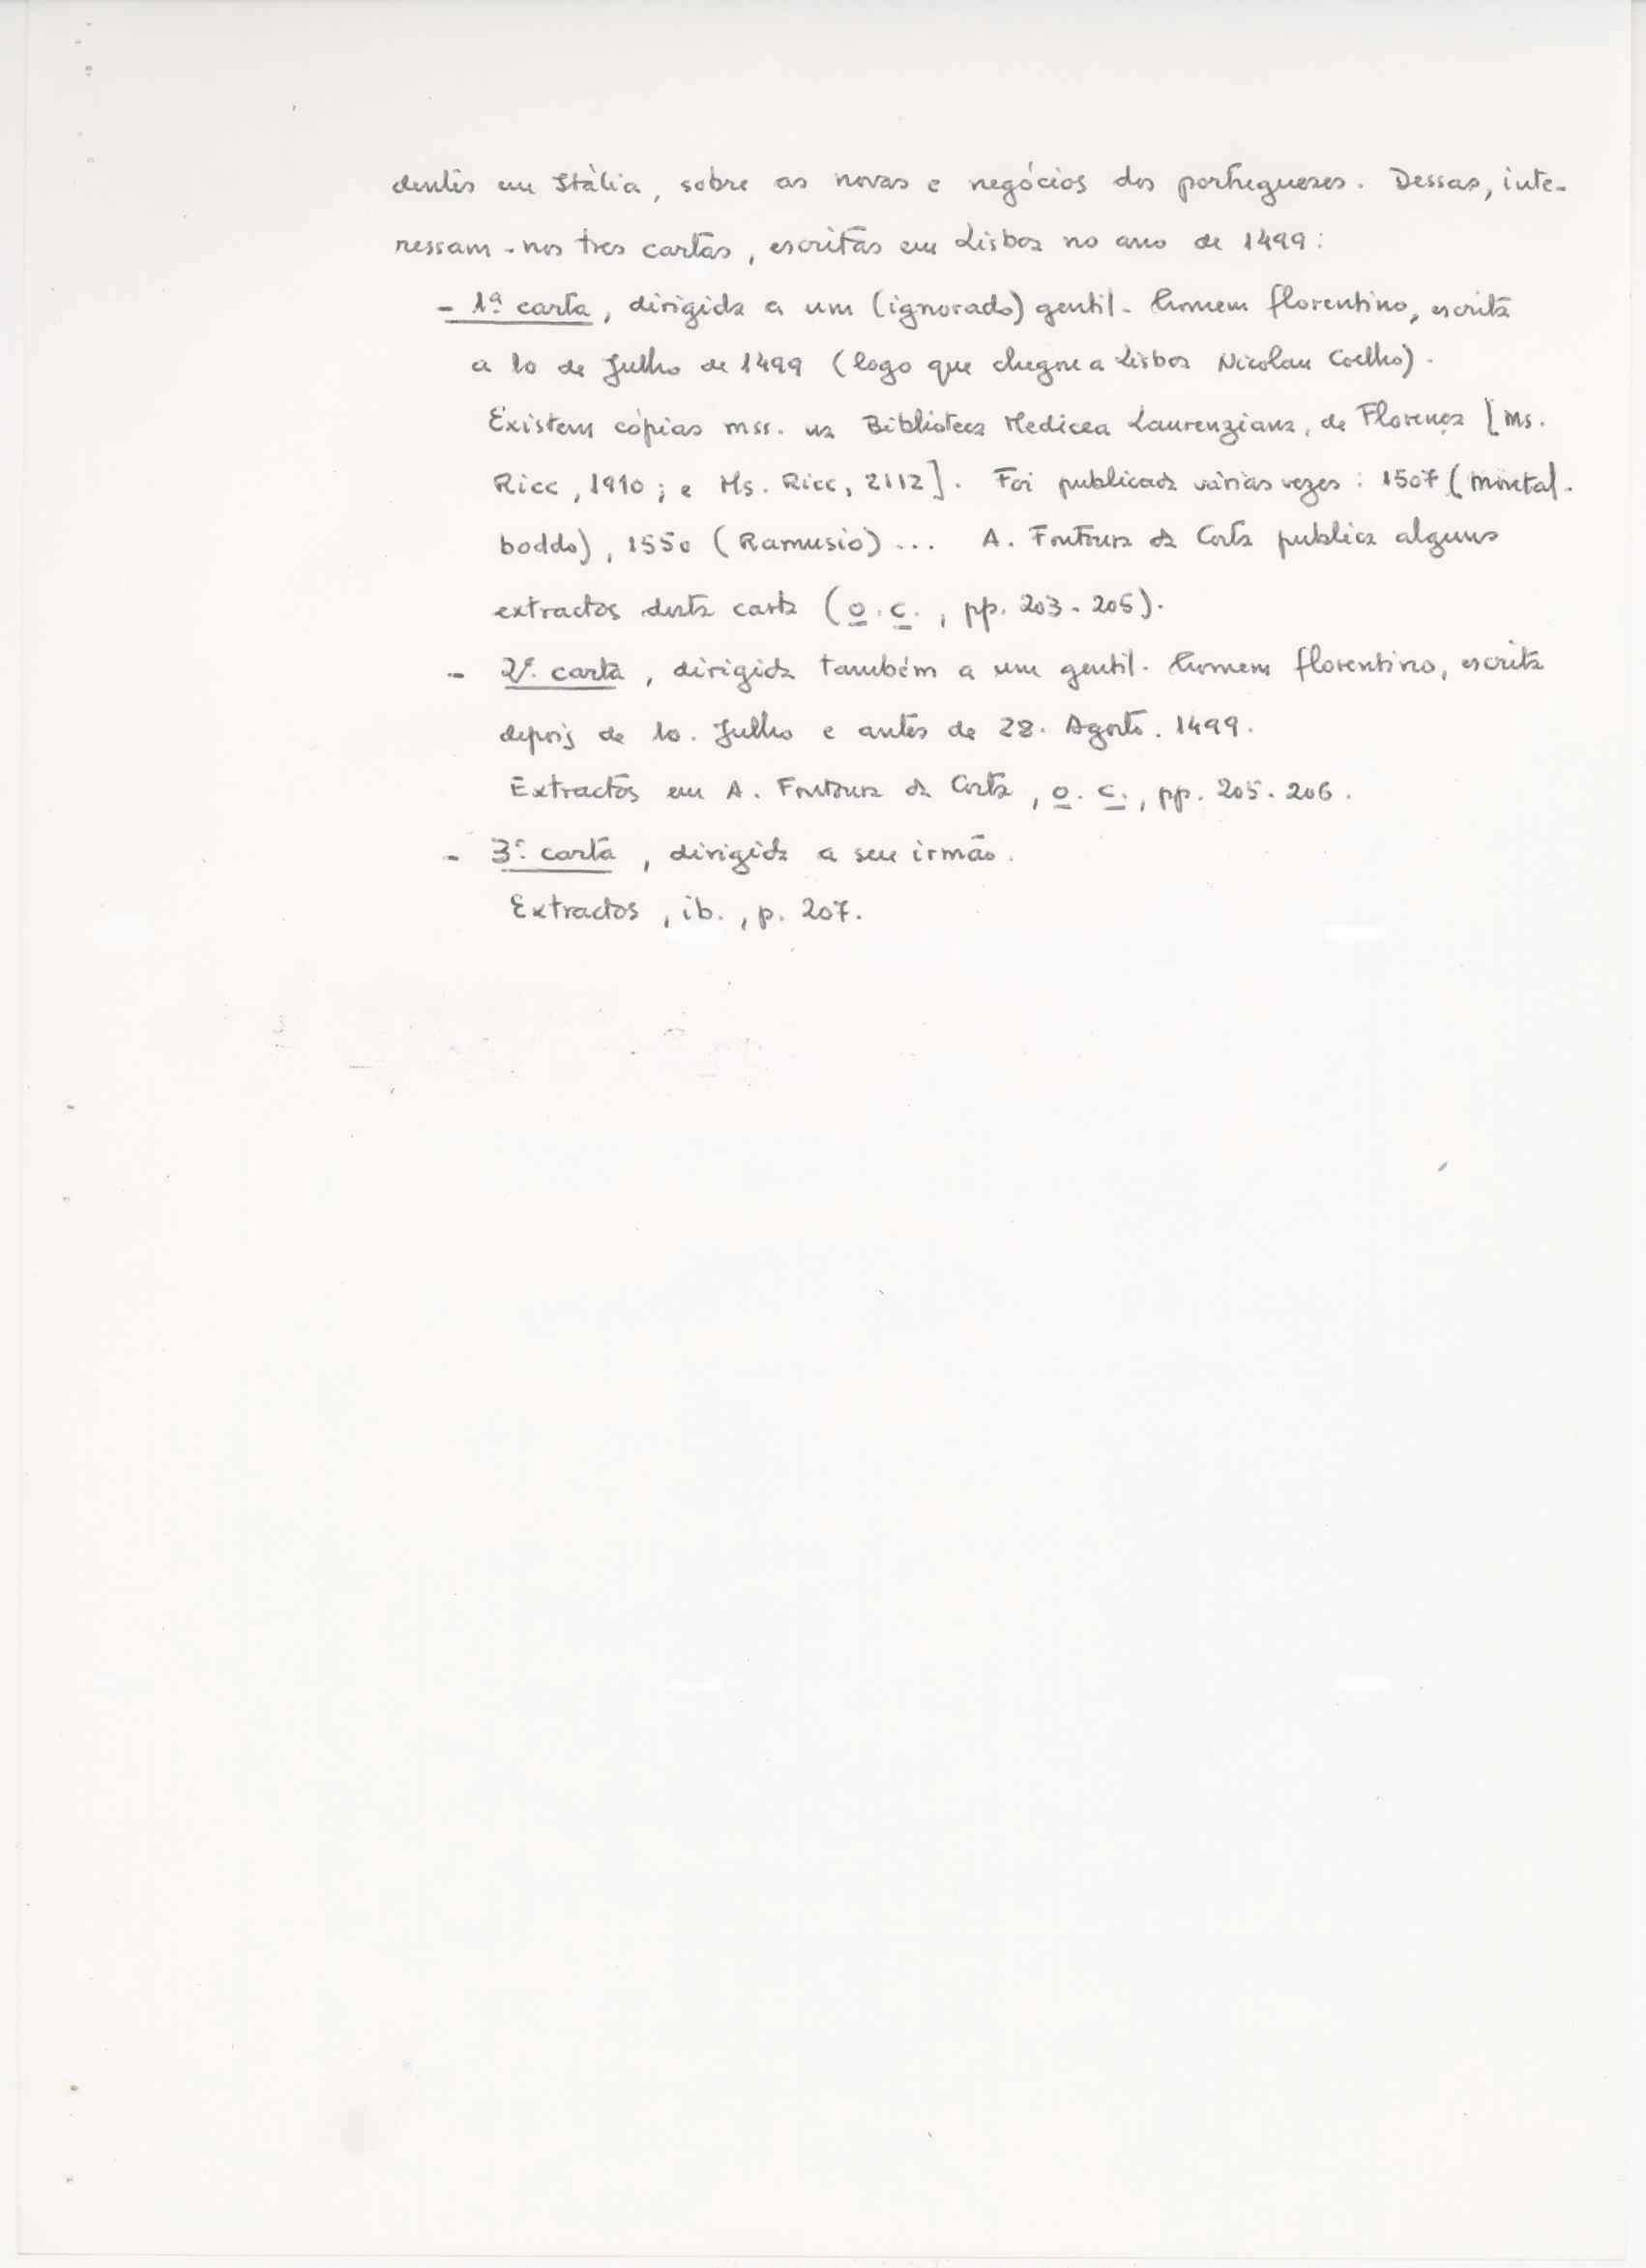 dentes em Itália, sobre as novas e negócios dos portugueses. Dessas, inte-
ressam-nos tres cartas, escritas em Lisboa no ano de 1499:
- 1ª carta, dirigida a um (ignorado) gentil-homem florentino, escrita
a 10 de Julho de 1499 (logo que chegou a Lisboa Nicolau Coelho).
Existem cópias mss. na Biblioteca Medicea Laurenziana, de Florença [Ms.
Ricc, 1910; e Ms. Ricc, 2112]. Foi publicada várias vezes: 1507 (Montal-
boddo), 1550 (Ramusio)... A. Fontoura da Costa publica alguns
extractos desta carta (o.c., pp. 203-205).
- 2ª carta, dirigida também a um gentil-homem florentino, escrita
depois de 10. Julho e antes de 28. Agosto. 1499.
Extractos em A. Fontoura da Costa, o. c., pp. 205-206.
- 3ª carta, dirigida a seu irmão.
Extractos, ib., p. 207.